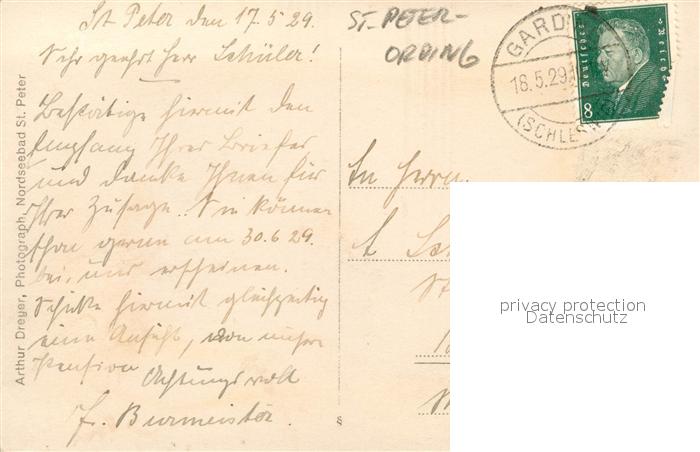 St Peter den 17.5.29.
Sehr geehrter Herr Schüler!
Bestätige hiermit den
Empfang Ihres Briefes
und danke Ihnen für
Ihre Zusage. Sie können
schon gerne am 30.6.29.
bei uns erscheinen.
Schicke hiermit gleichzeitig
eine Ansicht, von unsere
Pension
Achtungsvoll
Fr. Burmeister.
Arthur Dreyer, Photograph, Nordseebad St. Peter
ST. PETER-
ORDING
GARD
18.5.29
(SCHLESW
Deutsches Reich
8
An Herrn
§
privacy protection
Datenschutz